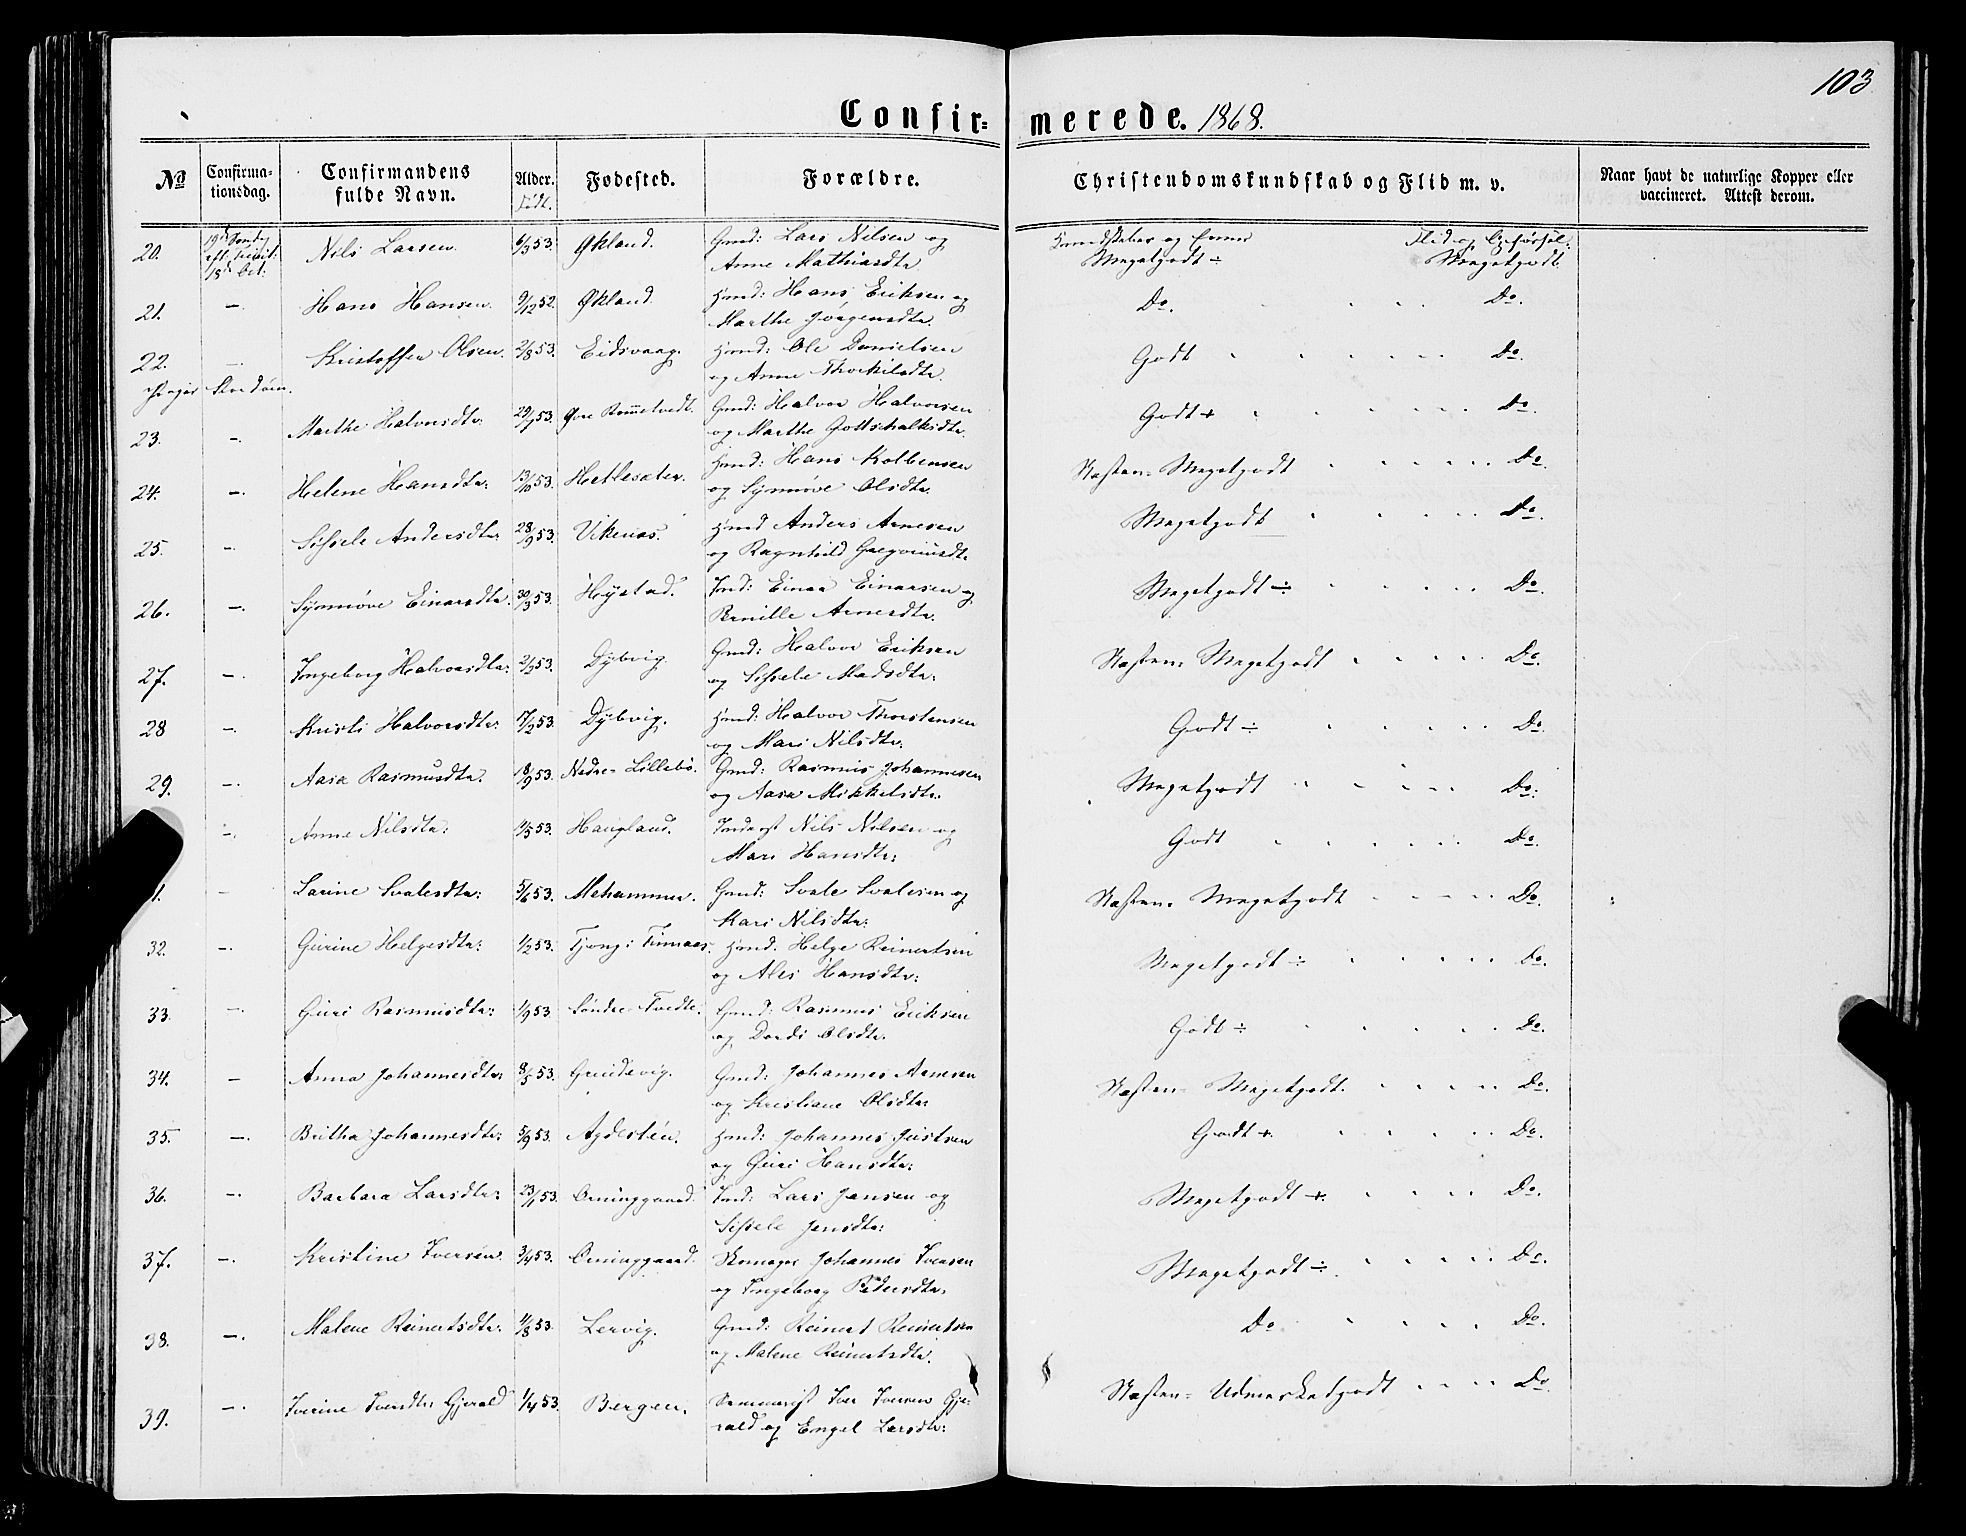 103
Confir= merede. 1868.
No Confirma-tionsdag. Confirmandens fulde Navn. Alder. Født. Fødested. Forældre. Christendomskundskab og Flid m. v. Naar havt de naturlige Kopper eller vaccineret. Attest derom.
20. 19de Sønd. eft. Trinit: 18de Oct: Nils Larsen. 6/3 53. Økland. Gmd: Lars Nilsen og Kundskaber og Evner Flid og Opførsel:
Anne Mathiasdtr. Megetgodt ÷ Megetgodt.
21. — Hans Hansen. 9/12 52. Økland. Hmd: Hans Eriksen og Do. Do.
Marthe Jørgensdtr.
22. — Kristoffer Olsen. 2/8 53. Eidsvaag. Hmd: Ole Danielsen Godt Do.
og Anne Thorkilsdtr.
Piger Stordøen.
23. — Marthe Halvorsdtr. 29/7 53. Øvre Rommetvedt. Gmd: Halvor Halvorsen Godt + Do.
og Marthe Gottschalksdtr.
24. — Helene Hansdtr. 13/10 53. Hetlesæter. Hmd: Hans Kolbensen Næsten= Megetgodt Do.
og Synnøve Olsdtr.
25. — Sissele Andersdtr. 28/9 53. Vikenæs. Hmd Anders Arnesen Megetgodt Do.
og Ragnhild Gregoriusdtr.
26. — Synnøve Einarsdtr. 30/3 53. Hystad. Ind: Einar Einarsen og Megetgodt ÷ Do.
Pernille Arnesdtr.
27. — Ingeborg Halvorsdtr: 2/2 53. Dybvig. Gmd: Halvor Eriksen Næsten= Megetgodt Do.
og Sissele Madsdtr:
28 — Kristi Halvorsdtr: 7/2 53. Dybvig. Hmd: Halvor Thorstensen Godt ÷ Do.
og Mari Nilsdtr.
29. — Aasa Rasmusdtr. 18/9 53. Nedre- Lillebø. Gmd: Rasmus Johannesen Megetgodt Do:
og Aasa Mikkelsdtr.
— Anne Nilsdtr: 1/5 53. Haugland. Inderst Nils Nilsen og Godt Do.
Mari Hansdtr:
1. — Larine Svalesdtr: 5/6 53. Mehammer. Gmd: Svale Svalesen og Næsten= Megetgodt Do.
Kari Nilsdtr:
32. — Gurine Helgesdtr: 1/2 53. Tjong i Finnaas. Hmd: Helge Reinertsen Megetgodt ÷ Do.
og Ales Hansdtr:
33. — Guri Rasmusdtr: 1/9 53. Søndre Tvedte. Gmd: Rasmus Eriksen Godt ÷ Do.
og Dordi Olsdtr.
34. — Anna Johannesdtr: 8/5 53. Grudevig. Gmd: Johannes Arnesen Næsten= Megetgodt. Do.
og Kristiane Olsdtr:
35. — Britha Johannesdtr: 5/9 53. Agdestén. Hmd: Johannes Justsen Godt + Do.
og Guri Hansdtr:
36. — Barbara Larsdtr: 23/1 53. Orninggaard. Ind: Lars Jansen og Megetgodt +. Do.
Sissele Jensdtr:
37. — Kristine Iversen. 3/4 53. Orninggaard. Skomager Johannes Iversen Megetgodt ÷ Do.
og Ingeborg Pedersdtr.
38. — Malene Reinertsdtr. 4/8 53. Lervig. Gmd: Reinert Reinertsen Do Do.
og Malene Reinertsdtr.
39. — Iverine Iversdtr Gjerald 1/4 53. Bergen. Iver Iversen Gje- Næsten= Udmerketgodt Do.
rald og Engel Larsdtr: